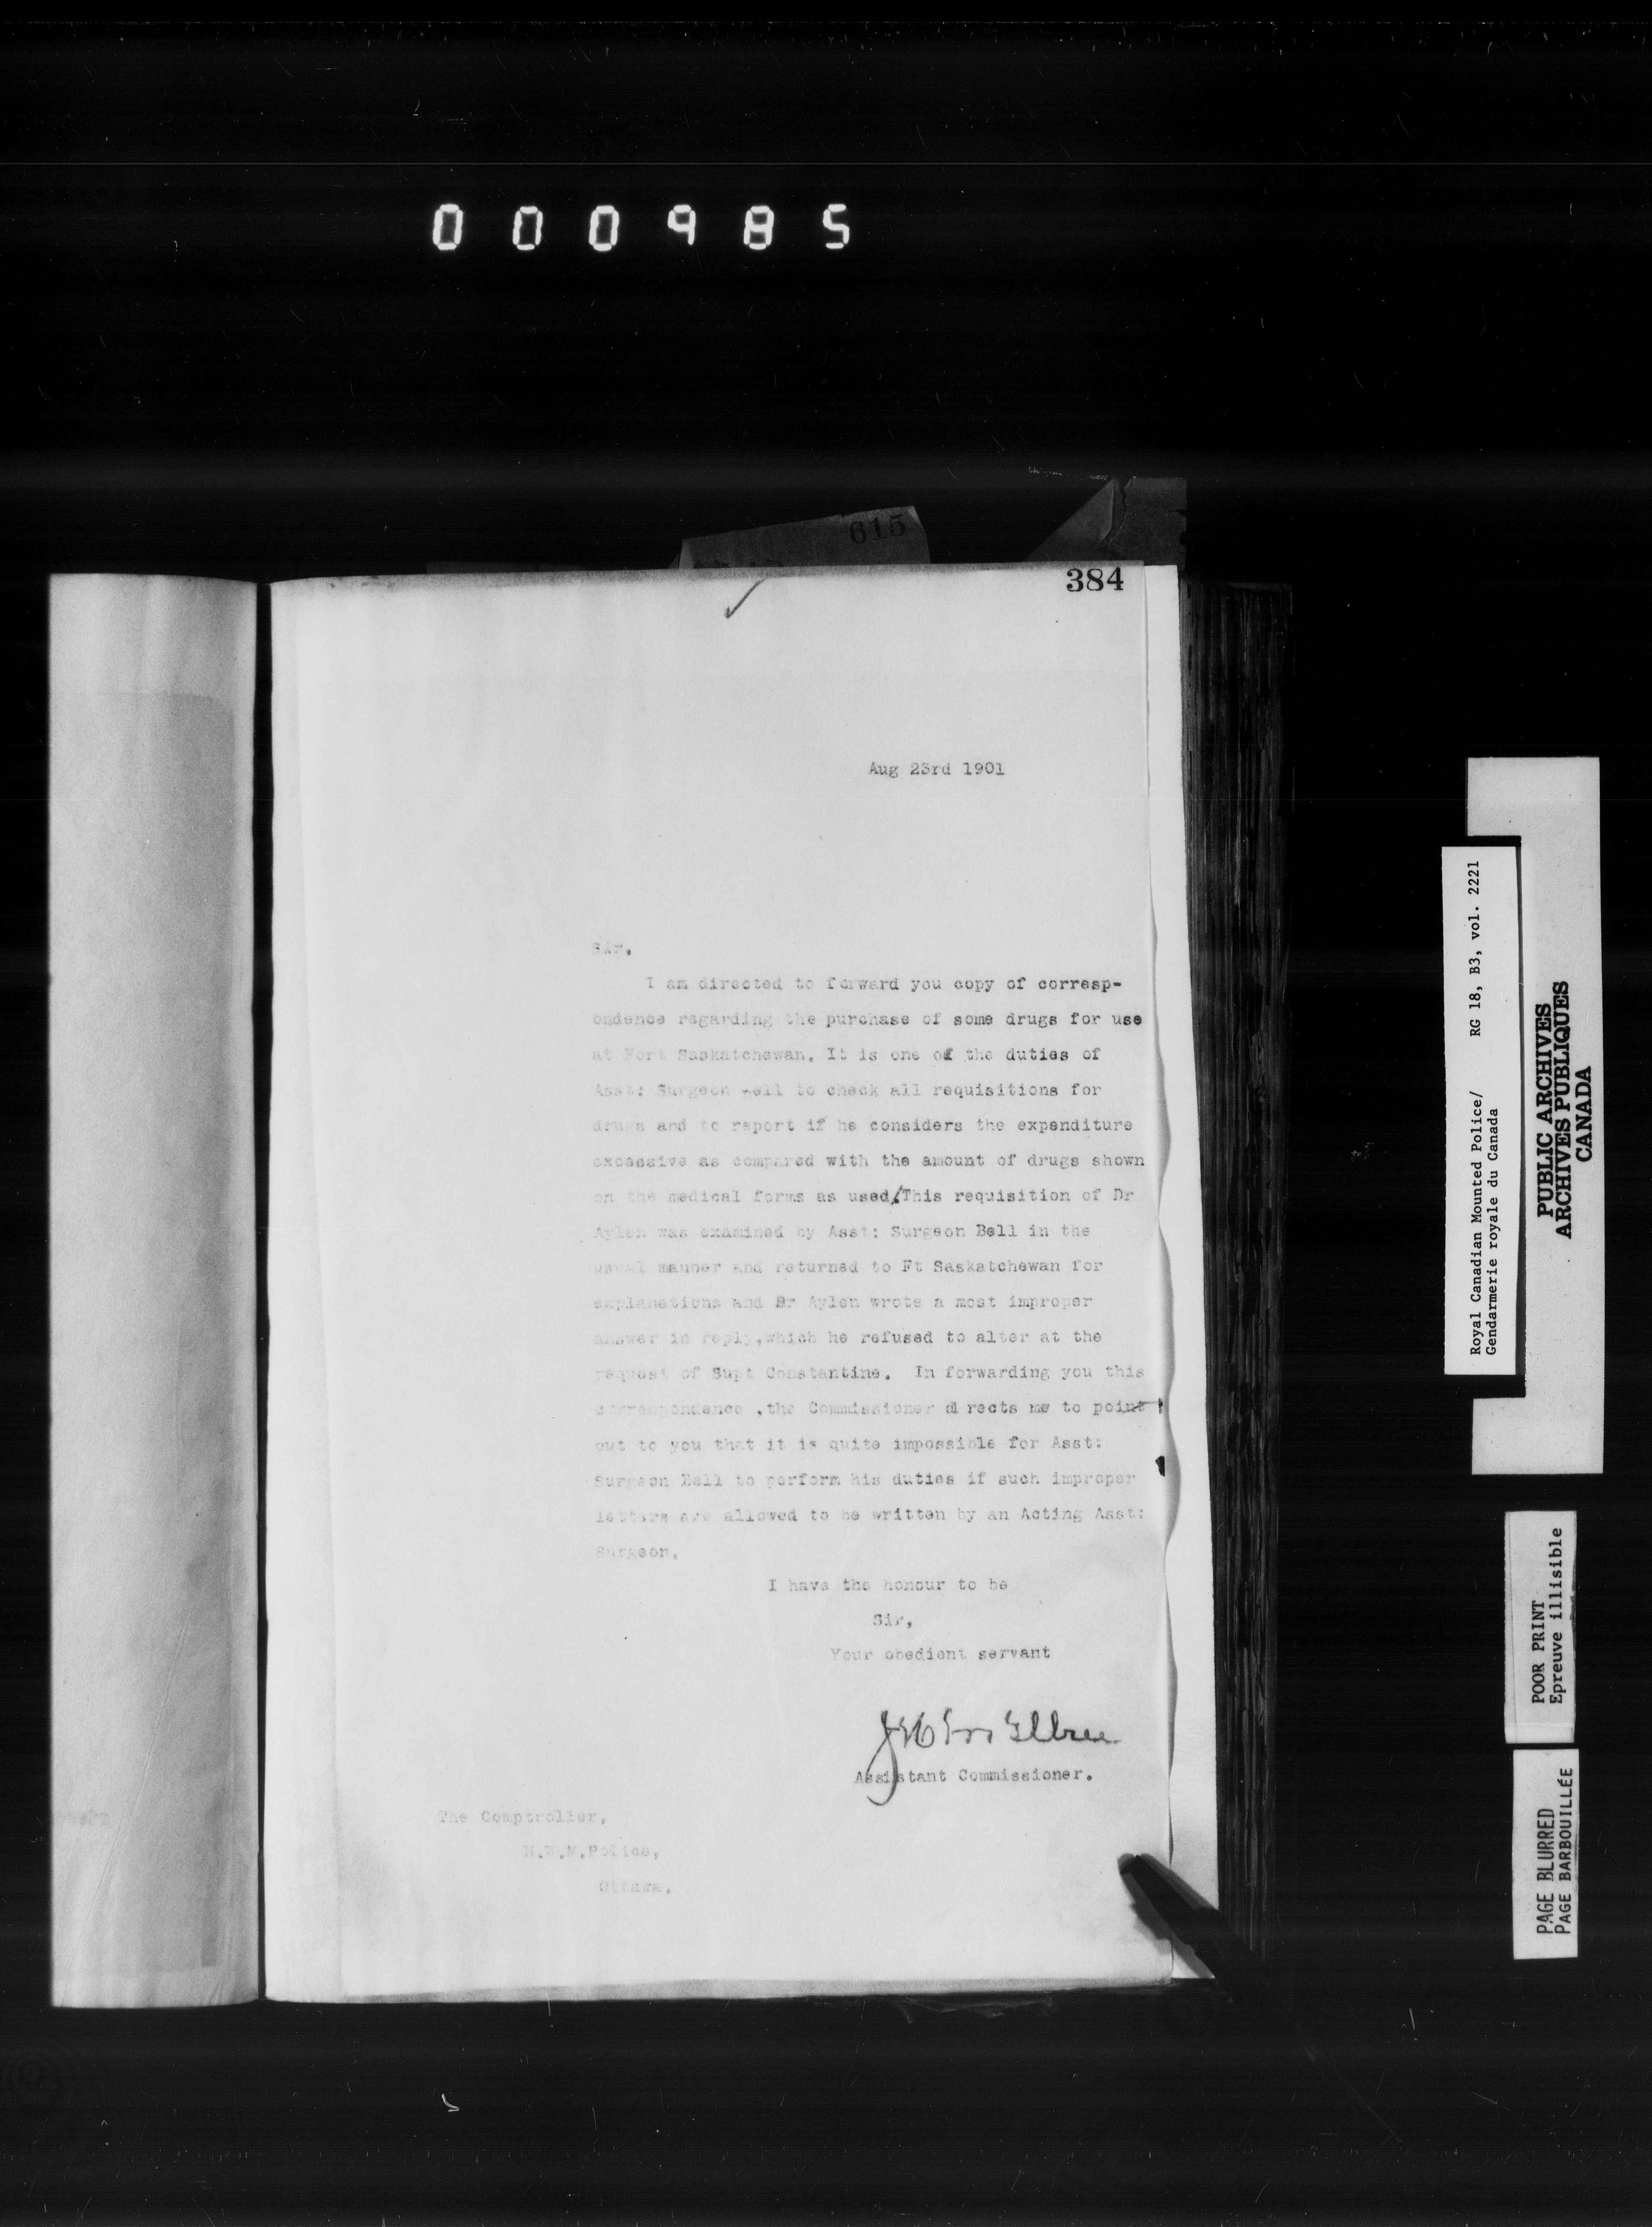 000985
615
384
Aug 23rd 1901
Sir,
I am directed to forward you copy of corresp-
ondence regarding the purchase of some drugs for use
at Fort Saskatchewan. It is one of the duties of
Asst: Surgeon Bell to check all requisitions for
drugs and to report if he considers the expenditure
excessive as compared with the amount of drugs shown
on the medical forms as used. This requisition of Dr
Aylen was examined by Asst: Surgeon Bell in the
usual manner and returned to Ft Saskatchewan for
explanations and Dr Aylen wrote a most improper
answer in reply,which he refused to alter at the
request of Supt Constantine. In forwarding you this
correspondence ,the Commissioner directs me to point
out to you that it is quite impossible for Asst:
Surgeon Bell to perform his duties if such improper
letters are allowed to be written by an Acting Asst:
Surgeon.
I have the honour to be
Sir,
Your obedient servant
Assistant Commissioner.
The Comptroller,
N.W.M.Police,
Ottawa.
Royal Canadian Mounted Police/ RG 18, B3, vol. 2221
Gendarmerie royale du Canada
PUBLIC ARCHIVES
ARCHIVES PUBLIQUES
CANADA
POOR PRINT
Epreuve illisible
PAGE BLURRED
PAGE BARBOUILLÉE